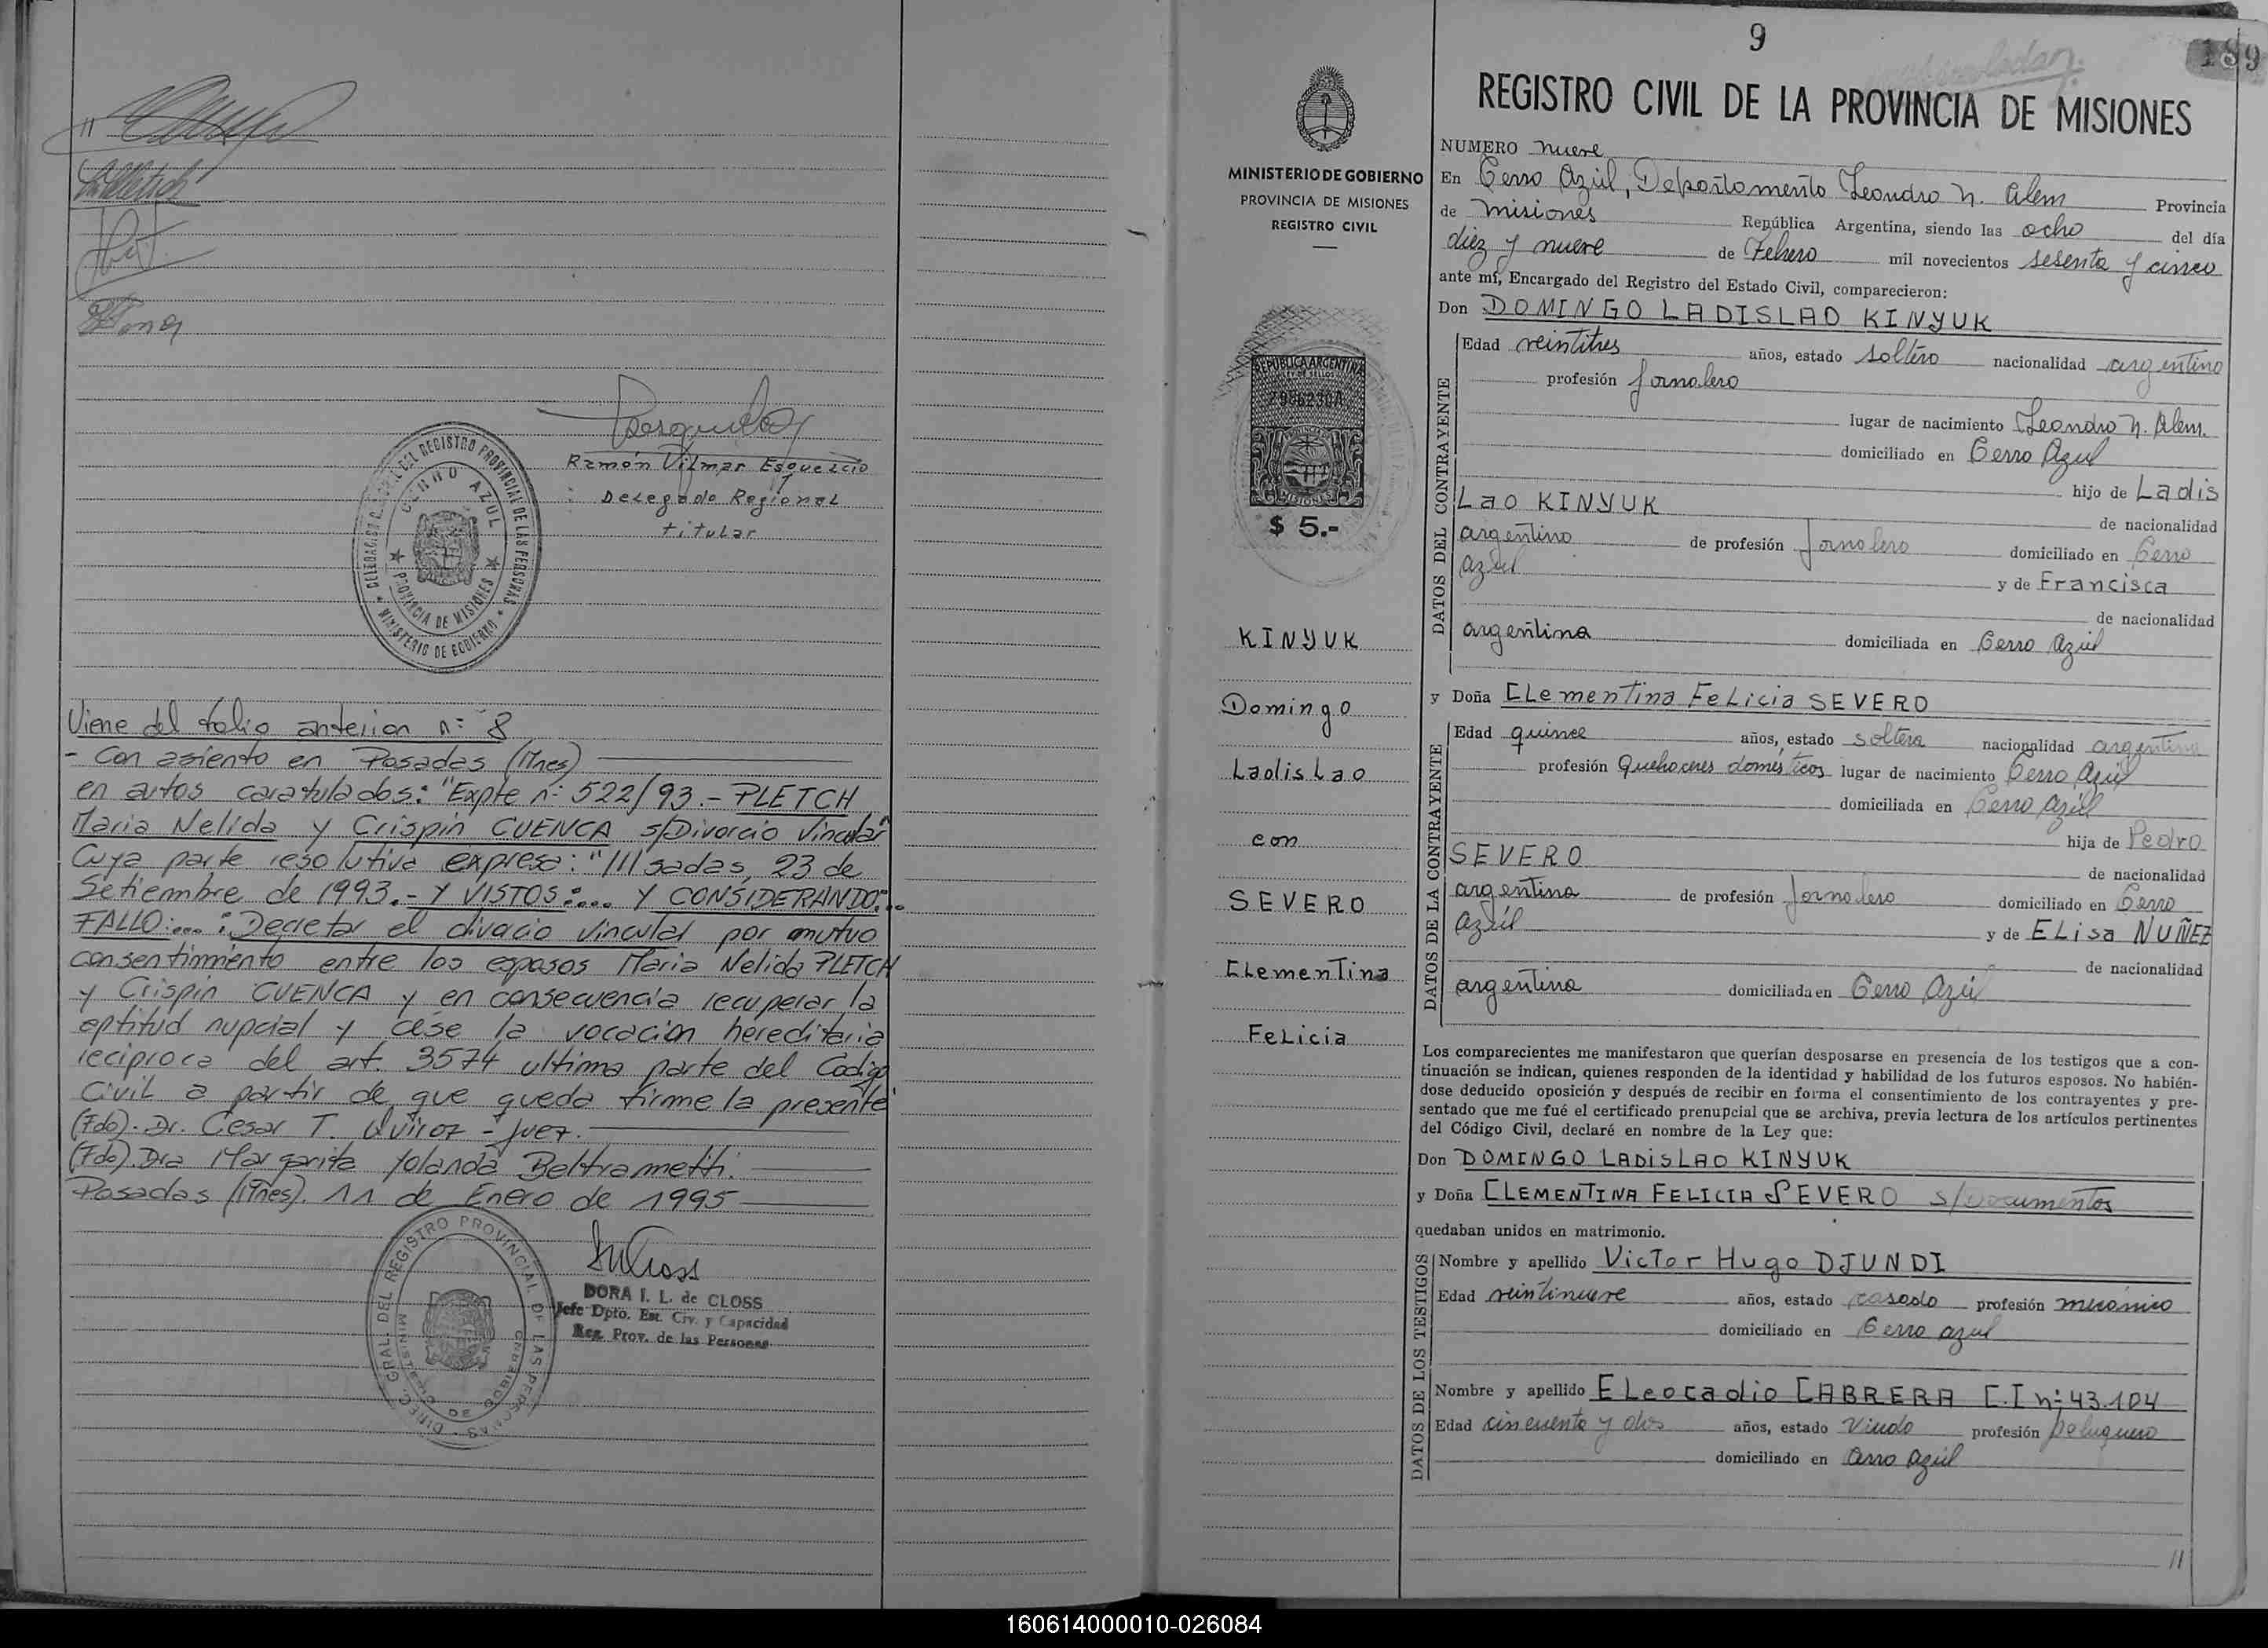 Ramón Vilmar Esquercio
Delegado Regional
titular
DELEGACION REGISTRO PROVINCIAL DE LAS PERSONAS
CERRO AZUL
PROVINCIA DE MISIONES
MINISTERIO DE GOBIERNO
Viene del folio anterior nº 8
- Con asiento en Posadas (Mnes)
en autos caratulados: "Expte nº 522/93.- PLETCH
Maria Nelida y Crispin CUENCA s/Divorcio Vincular"
Cuya parte resolutiva expresa: "///sadas, 23 de
Setiembre de 1993.- Y VISTOS:.... Y CONSIDERANDO:..
FALLO:... : Decretar el divorcio vincular por mutuo
consentimiento entre los esposos Maria Nelida PLETCH
y Crispin CUENCA y en consecuencia recuperar la
aptitud nupcial y cese la vocación hereditaria
reciproca del art. 3574 ultima parte del Código
Civil a partir de que queda firme la presente"
(Fdo). Dr. Cesar T. Quiroz - Juez.
(Fdo). Dra Margarita Yolanda Beltrametti.
Posadas (Mnes). 11 de Enero de 1995
DORA I. L. de CLOSS
Jefe Dpto. Est. Civ. y Capacidad
Reg. Prov. de las Personas
DIREC. GRAL. DEL REGISTRO PROVINCIAL DE LAS PERSONAS
9
189
REGISTRO CIVIL DE LA PROVINCIA DE MISIONES
MINISTERIO DE GOBIERNO
PROVINCIA DE MISIONES
REGISTRO CIVIL
REPUBLICA ARGENTINA
LEY DE SELLOS
MISIONES
$ 5.-
KINYUK
Domingo
Ladislao
con
SEVERO
Clementina
Felicia
NUMERO nueve
En Cerro Azúl, Departamento Leandro N. Alem Provincia
de Misiones República Argentina, siendo las ocho del día
diez y nueve de Febrero mil novecientos sesenta y cinco
ante mí, Encargado del Registro del Estado Civil, comparecieron:
Don DOMINGO LADISLAO KINYUK
DATOS DEL CONTRAYENTE
Edad veintitres años, estado soltero nacionalidad argentino
profesión Jornalero
lugar de nacimiento Leandro N. Alem.
domiciliado en Cerro Azul
hijo de Ladis
lao KINYUK de nacionalidad
argentino de profesión Jornalero domiciliado en Cerro
Azúl y de Francisca
de nacionalidad
argentina domiciliada en Cerro Azúl
y Doña Clementina Felicia SEVERO
DATOS DE LA CONTRAYENTE
Edad quince años, estado soltera nacionalidad argentina
profesión Quehaceres domésticos lugar de nacimiento Cerro Azúl
domiciliada en Cerro Azúl
hija de Pedro
SEVERO de nacionalidad
argentina de profesión Jornalero domiciliado en Cerro
Azúl y de Elisa NUÑEZ
de nacionalidad
argentina domiciliada en Cerro Azúl
Los comparecientes me manifestaron que querían desposarse en presencia de los testigos que a con-
tinuación se indican, quienes responden de la identidad y habilidad de los futuros esposos. No habién-
dose deducido oposición y después de recibir en forma el consentimiento de los contrayentes y pre-
sentado que me fué el certificado prenupcial que se archiva, previa lectura de los artículos pertinentes
del Código Civil, declaré en nombre de la Ley que:
Don DOMINGO LADISLAO KINYUK
y Doña CLEMENTINA FELICIA SEVERO s/documentos
quedaban unidos en matrimonio.
DATOS DE LOS TESTIGOS
Nombre y apellido Victor Hugo DJUNDI
Edad veintinueve años, estado casado profesión mecánico
domiciliado en Cerro azul
Nombre y apellido Eleocadio CABRERA C.I nº 43.104
Edad cincuenta y dos años, estado Viudo profesión peluquero
domiciliado en Cerro Azúl
//
160614000010-026084